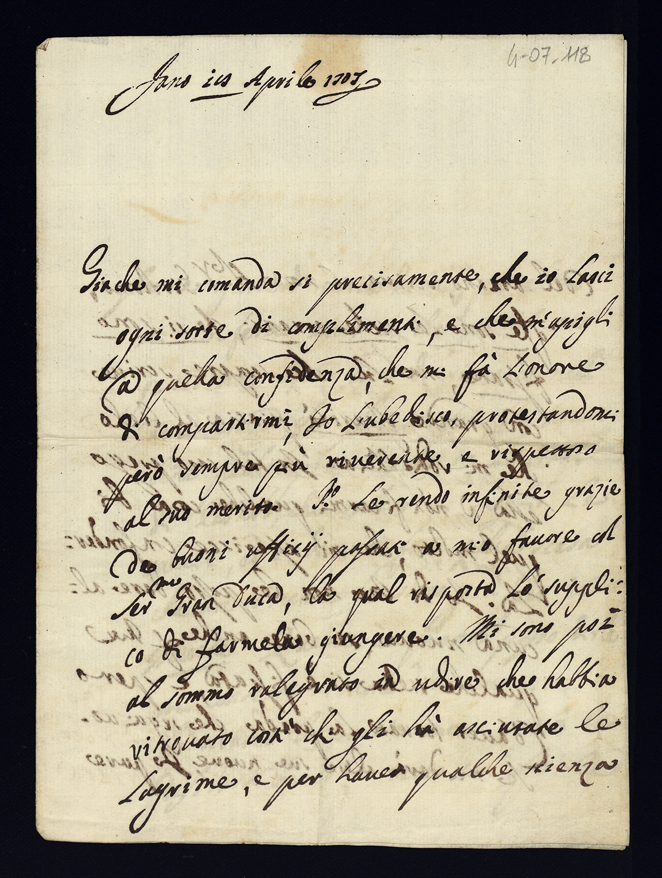 4-07-118
Aprile 1707
Giache mi comanda si precisamente, che io Lasci
ogni sorte di complimenti, e che m'apigli
a quella confidenza, che mi fà L'onore
di compartirmi, Io L'ubedisco, protestandomi
però sempre più riverente e rispettoso
al suo merito. P.o Le rendo infinite grazie
de buoni ufficij passati a mio favore col
Ser.mo Gran Duca, la qual risposta Lo suppli:
co di farmela giungere. Mi sono poi
al sommo ralegrato in udire che habbia
ritrovato cosa che gli hà asciutate le
Lagrime, e per haver qualche scienza